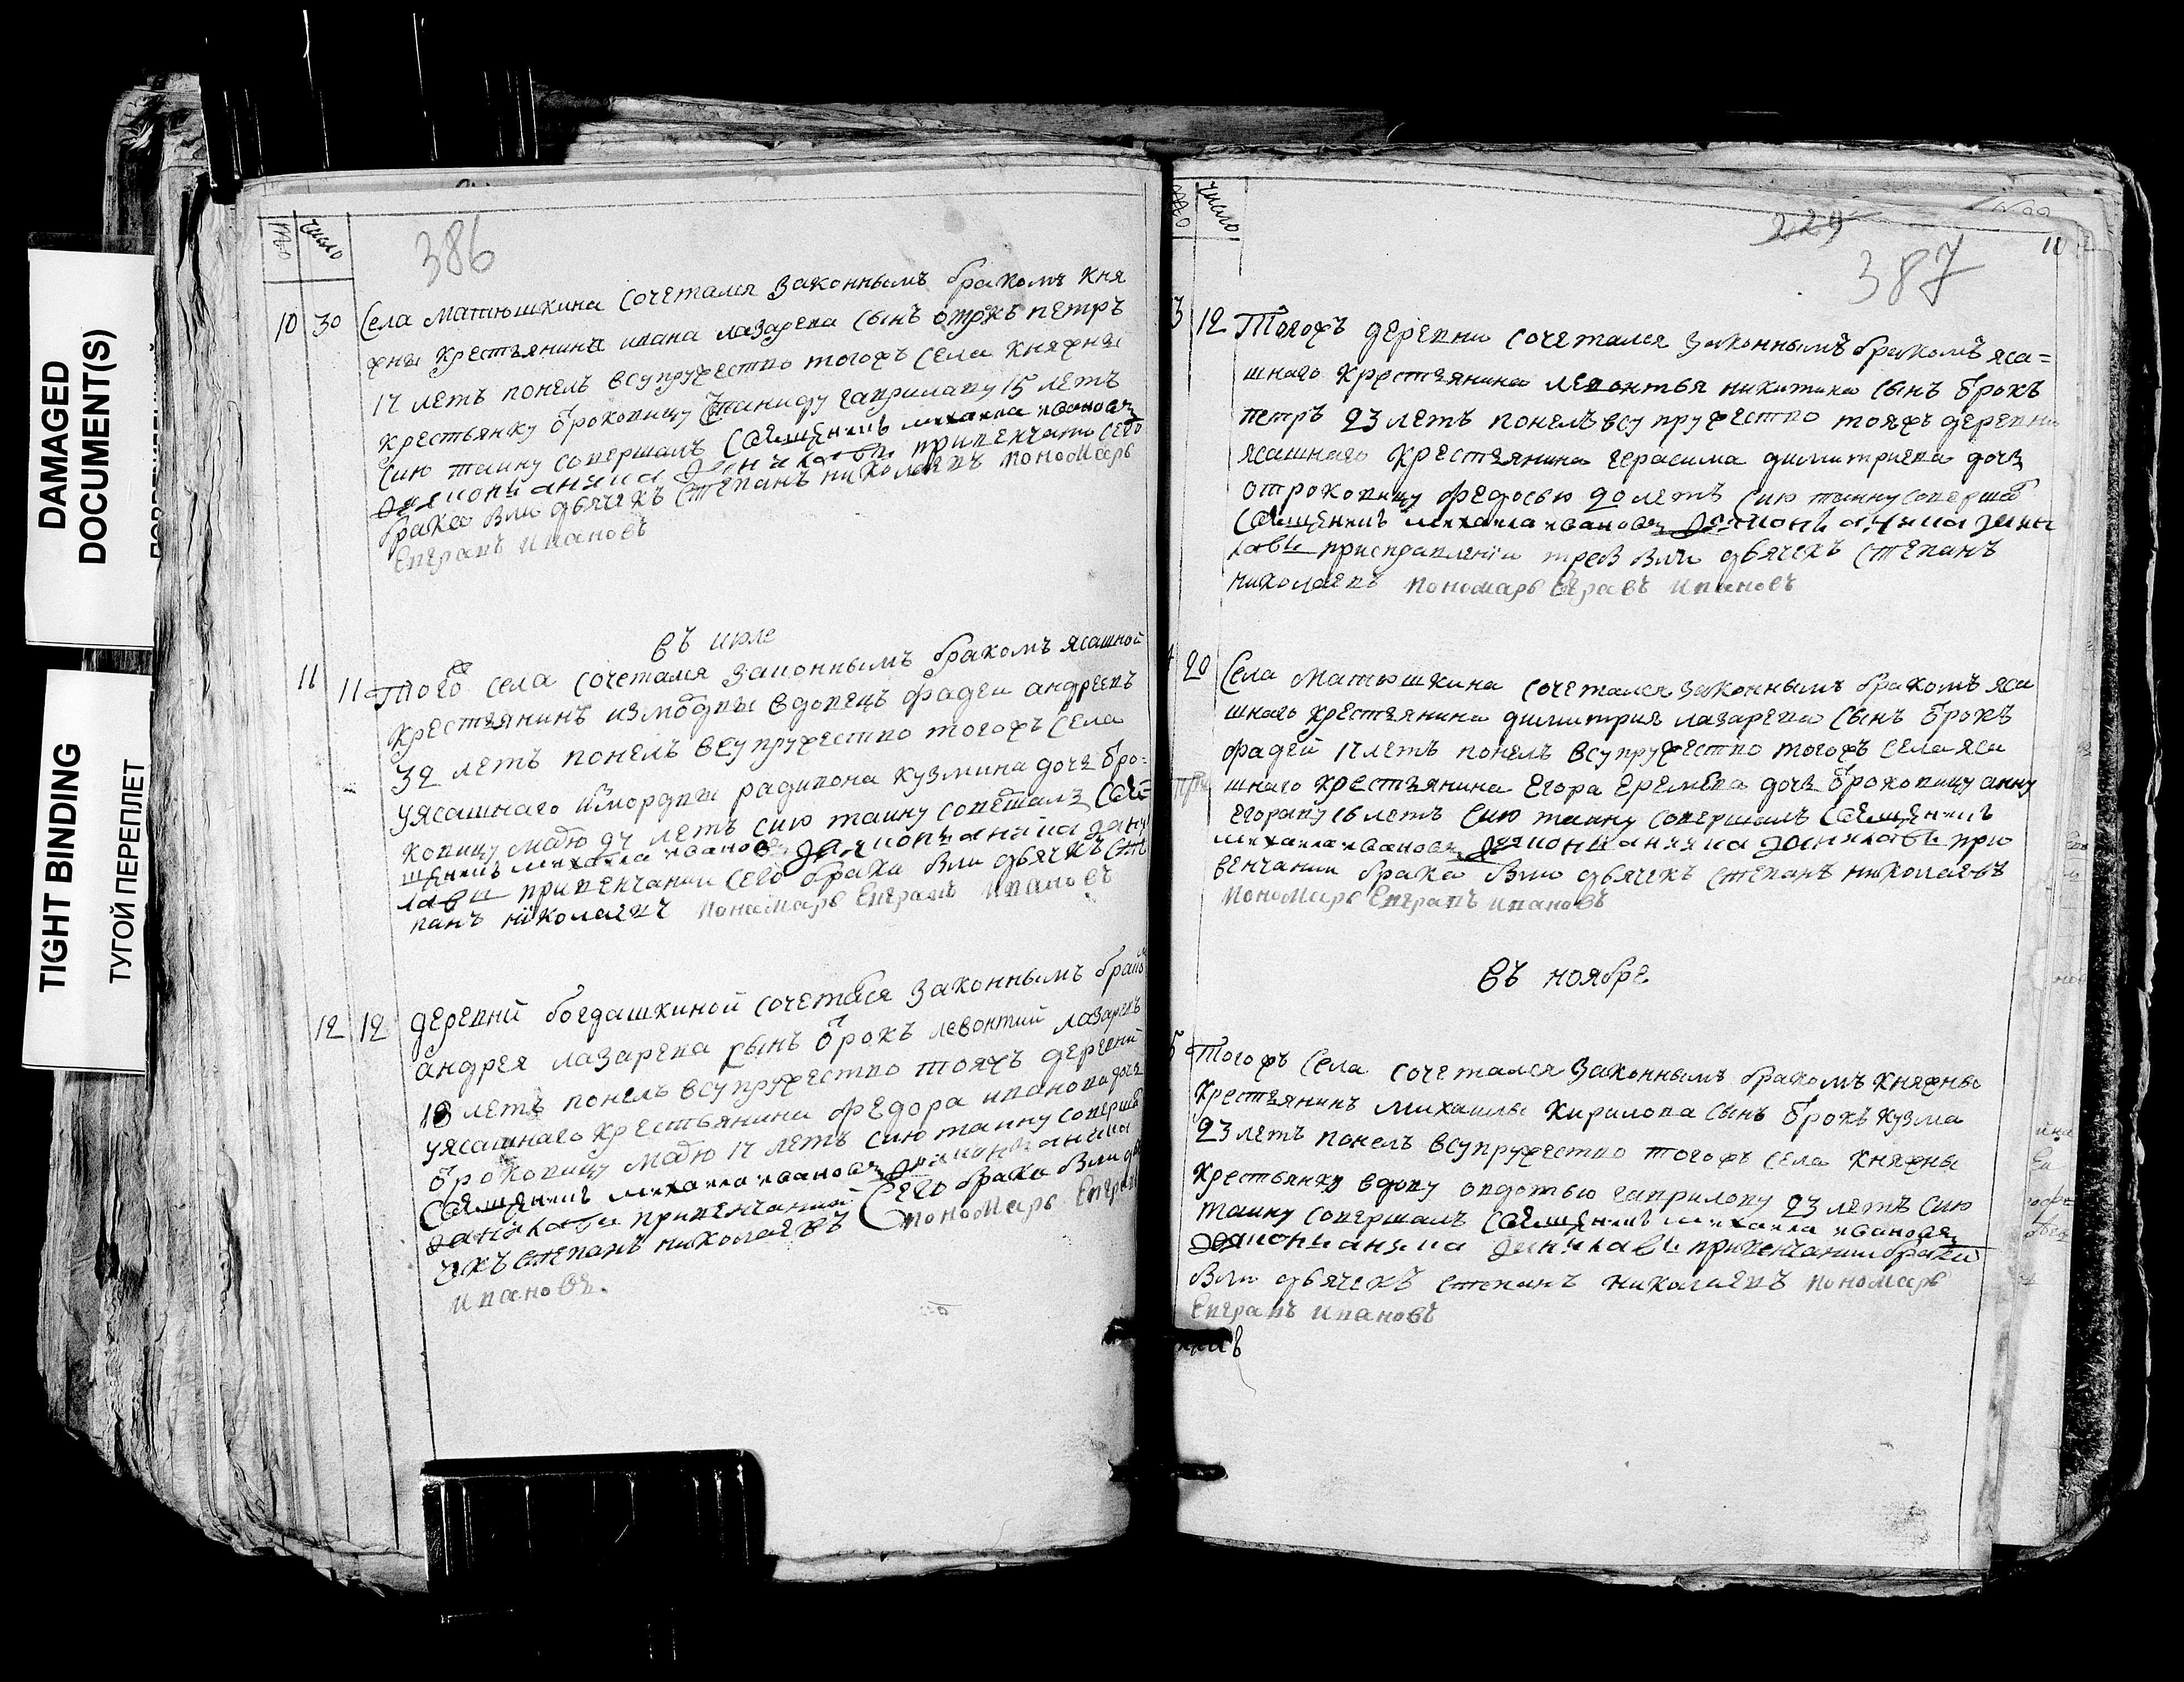 DAMAGED
DOCUMENT(S)
TIGHT BINDING
ТУГОЙ ПЕРЕПЛЕТ
число
386
10 30 Села матюшкина сочетался законнымъ бракомъ кня
жны крестьянина ивана лазарева сынъ отрокъ петръ
17 летъ понелъ всупружество тогожъ села княжны
крестьянку отроковицу гаврилову 15 летъ
сию таину совершалъ Священникъ михаила ивановъ
привенчани сего
брака были дьячекъ степанъ николаевъ пономарь
Евграпъ Ивановъ
въ июле
11 11 Того села сочетался законнымъ бракомъ ясашной
крестьянинъ измордвы вдовецъ фадеи андреевъ
32 летъ понелъ всупружество тогожъ села
уясашнаго измордвы радивона кузмина дочь отро=
ковицу 24 летъ сию таину совешалъ Свя=
щенникъ михаила ивановъ
привенчании сего брака были дьячекъ сте
панъ николаевъ пономарь Евграпъ Ивановъ
12 12 деревни богдашкиной сочетался законнымъ браком
андрея лазарева сынъ отрокъ левонтий лазаревъ
18 летъ понелъ всупружество тояжъ деревни
уясашнаго крестьянина федора иванова дочь
отроковицу 17 летъ сию таину соверша
Священникъ михаила ивановъ
привенчании сего брака были дья
чекъ степанъ николаевъ пономарь Евграпъ
Ивановъ.
число
229
387
12 Тогожъ деревни сочетался законнымъ бракомъ яса=
шнаго крестьянина левонтья никитина сынъ отрокъ
петръ 23 летъ понелъ всупружество тояжъ деревни
ясашнаго крестьянина герасима димитриева дочь
отроковицу федосью 20 летъ сию таину соверша
Священникъ михаила ивановъ
присправлении треб были дьячекъ степанъ
николаевъ пономарь Евграпъ Ивановъ
20 Села матюшкина сочетался законнымъ бракомъ яса
шнаго крестьянина димитрия лазарева сынъ отрокъ
фадей 17 летъ понелъ всупружество тогожъ села яса
шнаго крестьянина Егора Еремеева дочь отроковицу анну
Егорову 16 летъ сию таину совершалъ Священникъ
михаила ивановъ при
венчании брака были дьячекъ степанъ николаевъ
пономарь Евграпъ Ивановъ
въ ноябре
Тогожъ села сочетался законнымъ бракомъ княжны
крестьянинъ михаилы кирилова сынъ отрокъ кузма
23 летъ понелъ всупружество тогожъ села княжны
крестьянку вдову авдотью гаврилову 23 летъ сию
таину совершалъ Священникъ михаила ивановъ
привенчании брака
были дьячекъ степанъ николаевъ пономарь
Евграпъ Ивановъ